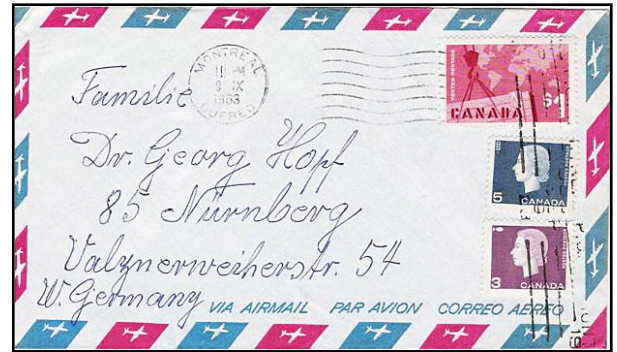 MONTREAL
11 PM
9 IX
1963
QUEBEC
POSTES-POSTAGE
$1
CANADA
5
CANADA
3
CANADA
Familie
Dr. Georg Hopf
85 Nürnberg
Valznerweiherstr. 54
W. Germany
VIA AIRMAIL PAR AVION CORREO AEREO